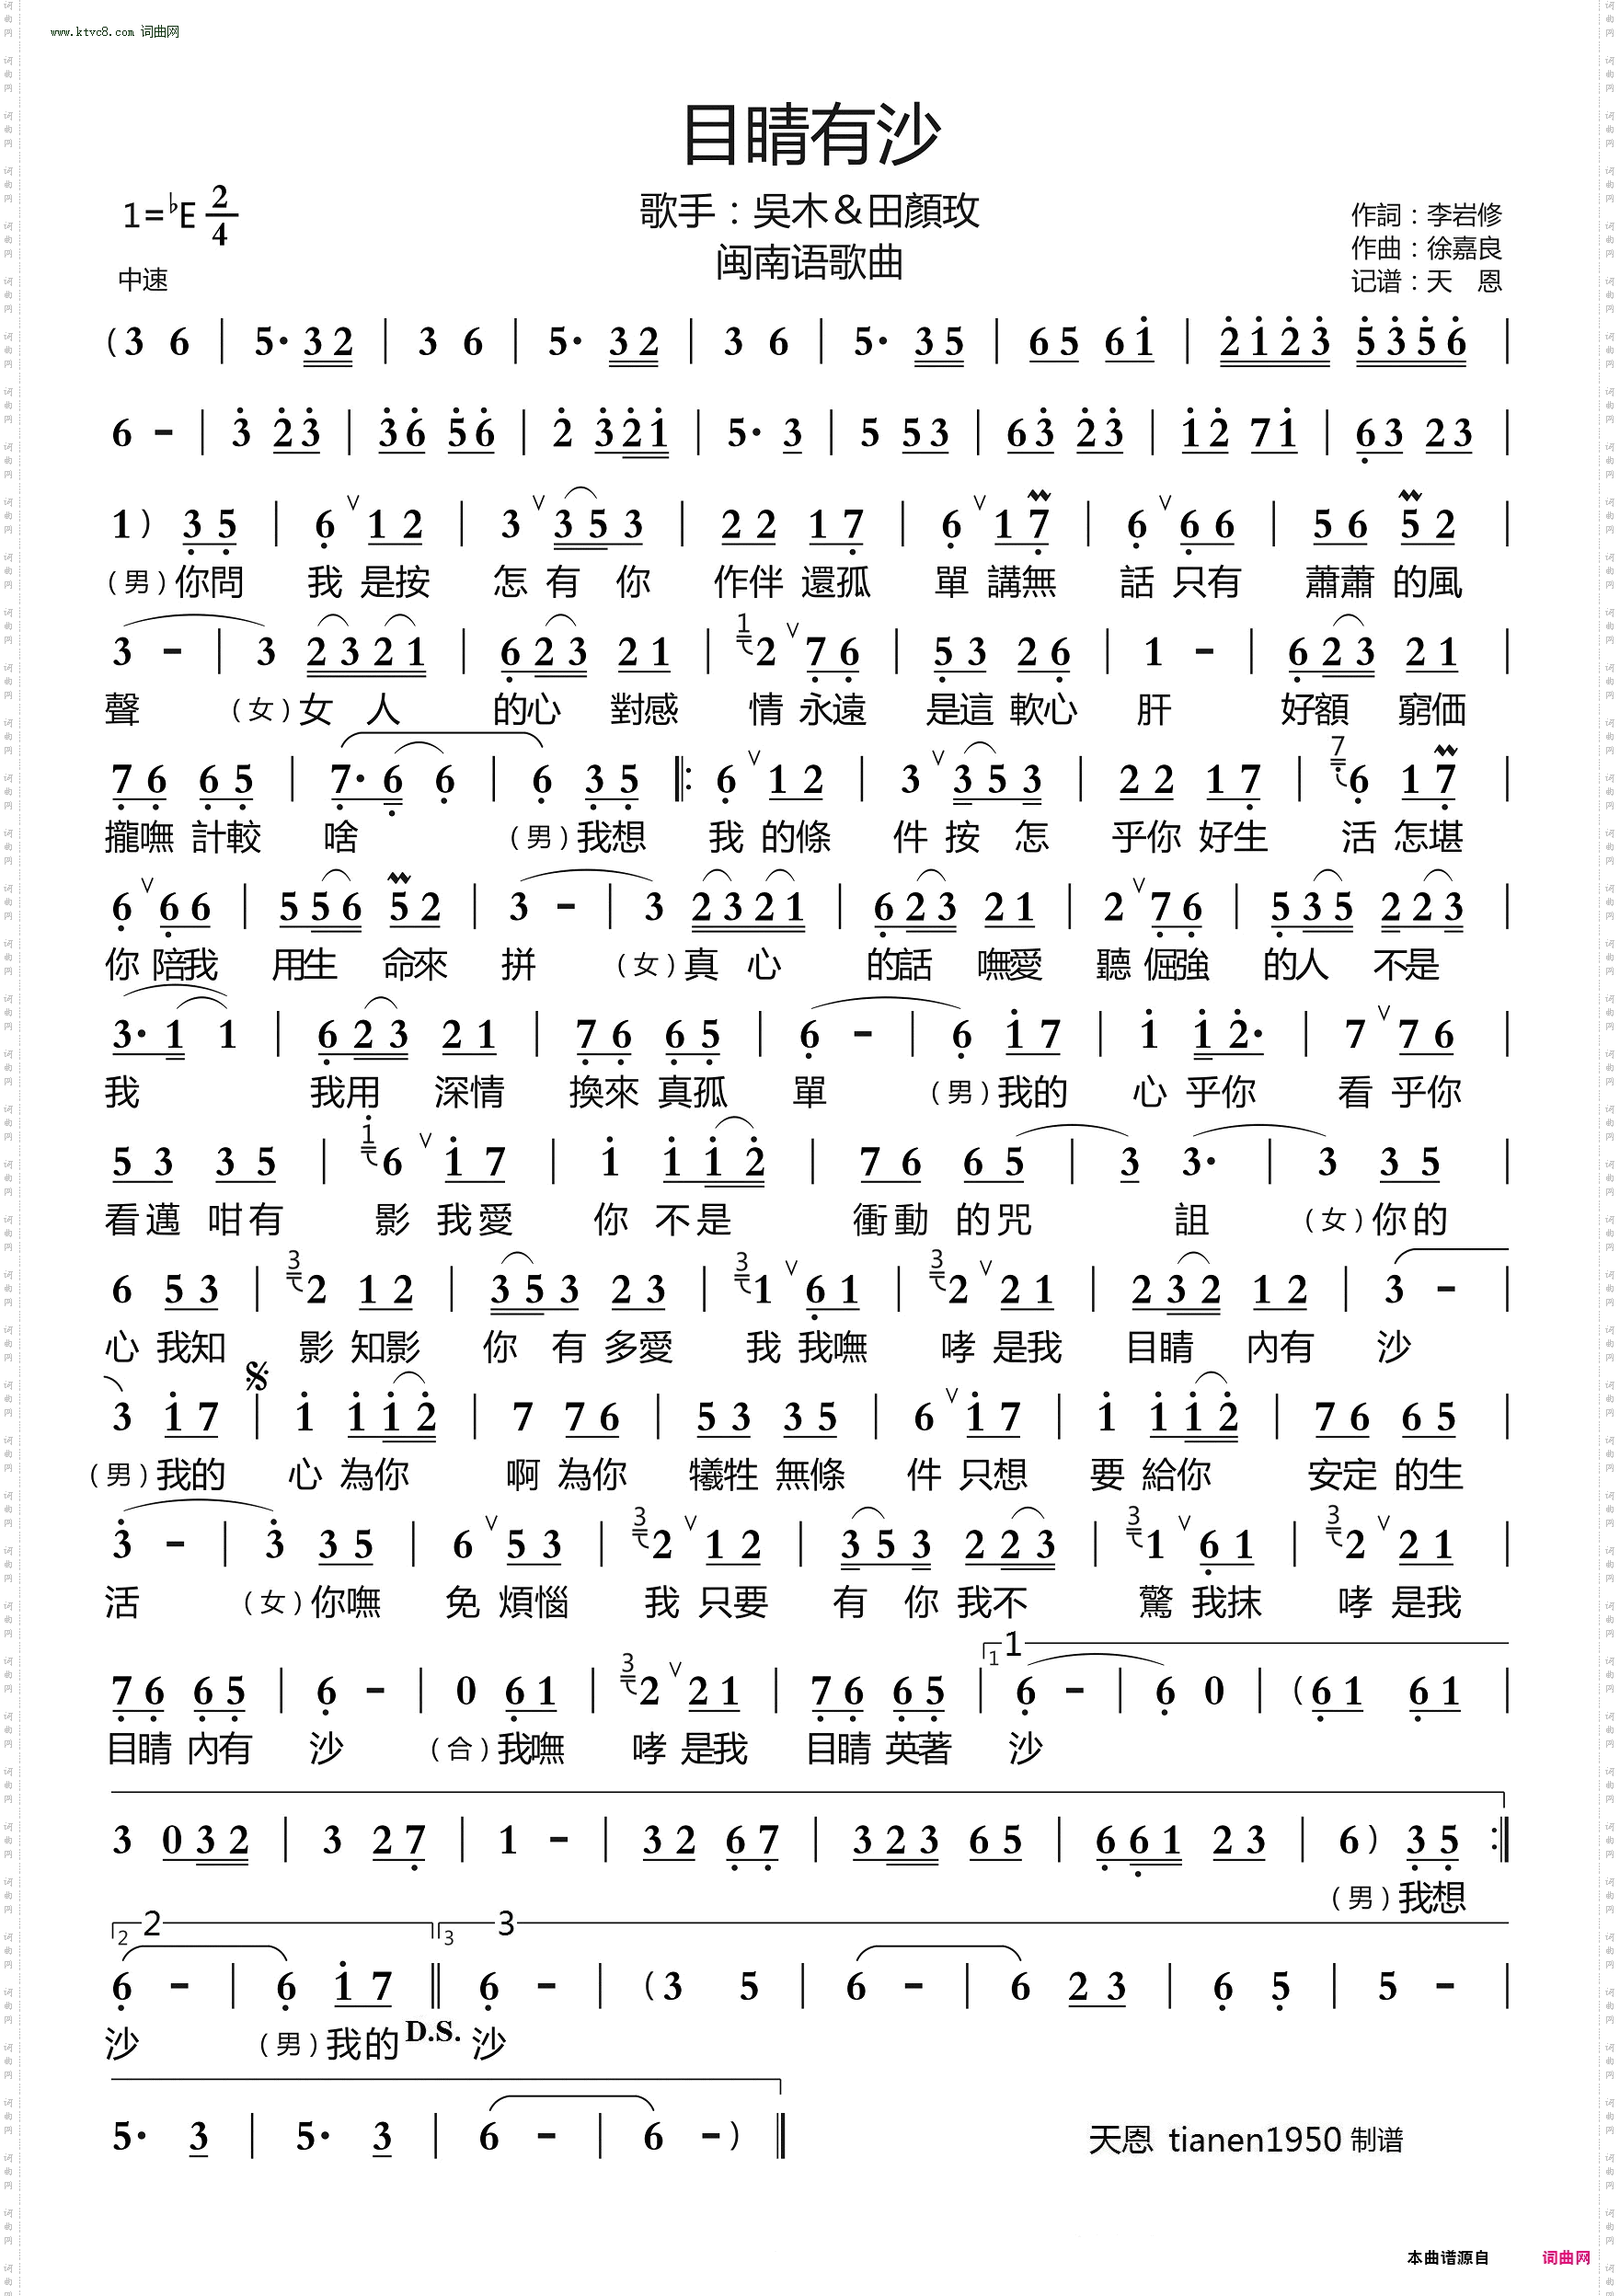 www.ktvc8.com 词曲网
目睛有沙
1=♭E 2/4
歌手：吳木＆田顏玫
闽南语歌曲
中速
作詞：李岩修
作曲：徐嘉良
记谱：天　恩
(3 6 | 5· 3 2 | 3 6 | 5· 3 2 | 3 6 | 5· 3 5 | 6 5 6 1 | 2 1 2 3 5 3 5 6 |
6 - | 3 2 3 | 3 6 5 6 | 2 3 2 1 | 5· 3 | 5 5 3 | 6 3 2 3 | 1 2 7 1 | 6 3 2 3 |
1) 3 5 | 6 ∨ 1 2 | 3 ∨ 3 5 3 | 2 2 1 7 | 6 ∨ 1 7 | 6 ∨ 6 6 | 5 6 5 2 |
（男）你問 我 是按 怎 有 你 作伴 還孤 單 講無 話 只有 蕭蕭 的風
3 - | 3 2 3 2 1 | 6 2 3 2 1 | 1 2 ∨ 7 6 | 5 3 2 6 | 1 - | 6 2 3 2 1 |
聲 （女）女 人 的心 對感 情 永遠 是這 軟心 肝 好額 窮価
7 6 6 5 | 7· 6 6 | 6 3 5 |: 6 ∨ 1 2 | 3 ∨ 3 5 3 | 2 2 1 7 | 7 6 1 7 |
攏嘸 計較 啥 （男）我想 我 的條 件 按 怎 乎你 好生 活 怎堪
6 ∨ 6 6 | 5 5 6 5 2 | 3 - | 3 2 3 2 1 | 6 2 3 2 1 | 2 ∨ 7 6 | 5 3 5 2 2 3 |
你 陪我 用生 命來 拼 （女）真 心 的話 嘸愛 聽 倔強 的人 不是
3· 1 1 | 6 2 3 2 1 | 7 6 6 5 | 6 - | 6 1 7 | 1 1 2· | 7 ∨ 7 6 |
我 我用 深情 換來 真孤 單 （男）我的 心 乎你 看 乎你
5 3 3 5 | 1 6 ∨ 1 7 | 1 1 1 2 | 7 6 6 5 | 3 3· | 3 3 5 |
看邁 咁有 影 我愛 你 不是 衝動 的咒 詛 （女）你的
6 5 3 | 3 2 1 2 | 3 5 3 2 3 | 3 1 ∨ 6 1 | 3 2 ∨ 2 1 | 2 3 2 1 2 | 3 - |
心 我知 影 知影 你 有 多愛 我 我嘸 哮 是我 目睛 內有 沙
3 1 7 | 1 1 1 2 | 7 7 6 | 5 3 3 5 | 6 ∨ 1 7 | 1 1 1 2 | 7 6 6 5 |
（男）我的 心 為你 啊 為你 犧牲 無條 件 只想 要 給你 安定 的生
3 - | 3 3 5 | 6 ∨ 5 3 | 3 2 ∨ 1 2 | 3 5 3 2 2 3 | 3 1 ∨ 6 1 | 3 2 ∨ 2 1 |
活 （女）你嘸 免 煩惱 我 只要 有 你 我不 驚 我抹 哮 是我
1 1
7 6 6 5 | 6 - | 0 6 1 | 3 2 ∨ 2 1 | 7 6 6 5 | 6 - | 6 0 | (6 1 6 1 |
目睛 內有 沙 （合）我嘸 哮 是我 目睛 英著 沙
3 0 3 2 | 3 2 7 | 1 - | 3 2 6 7 | 3 2 3 6 5 | 6 6 1 2 3 | 6) 3 5 :|
（男）我想
2 2 3 3
6 - | 6 1 7 || 6 - | (3 5 | 6 - | 6 2 3 | 6 5 | 5 - |
沙 （男）我的 D.S. 沙
5· 3 | 5· 3 | 6 - | 6 -) ||
天恩 tianen1950 制谱
本曲谱源自 词曲网